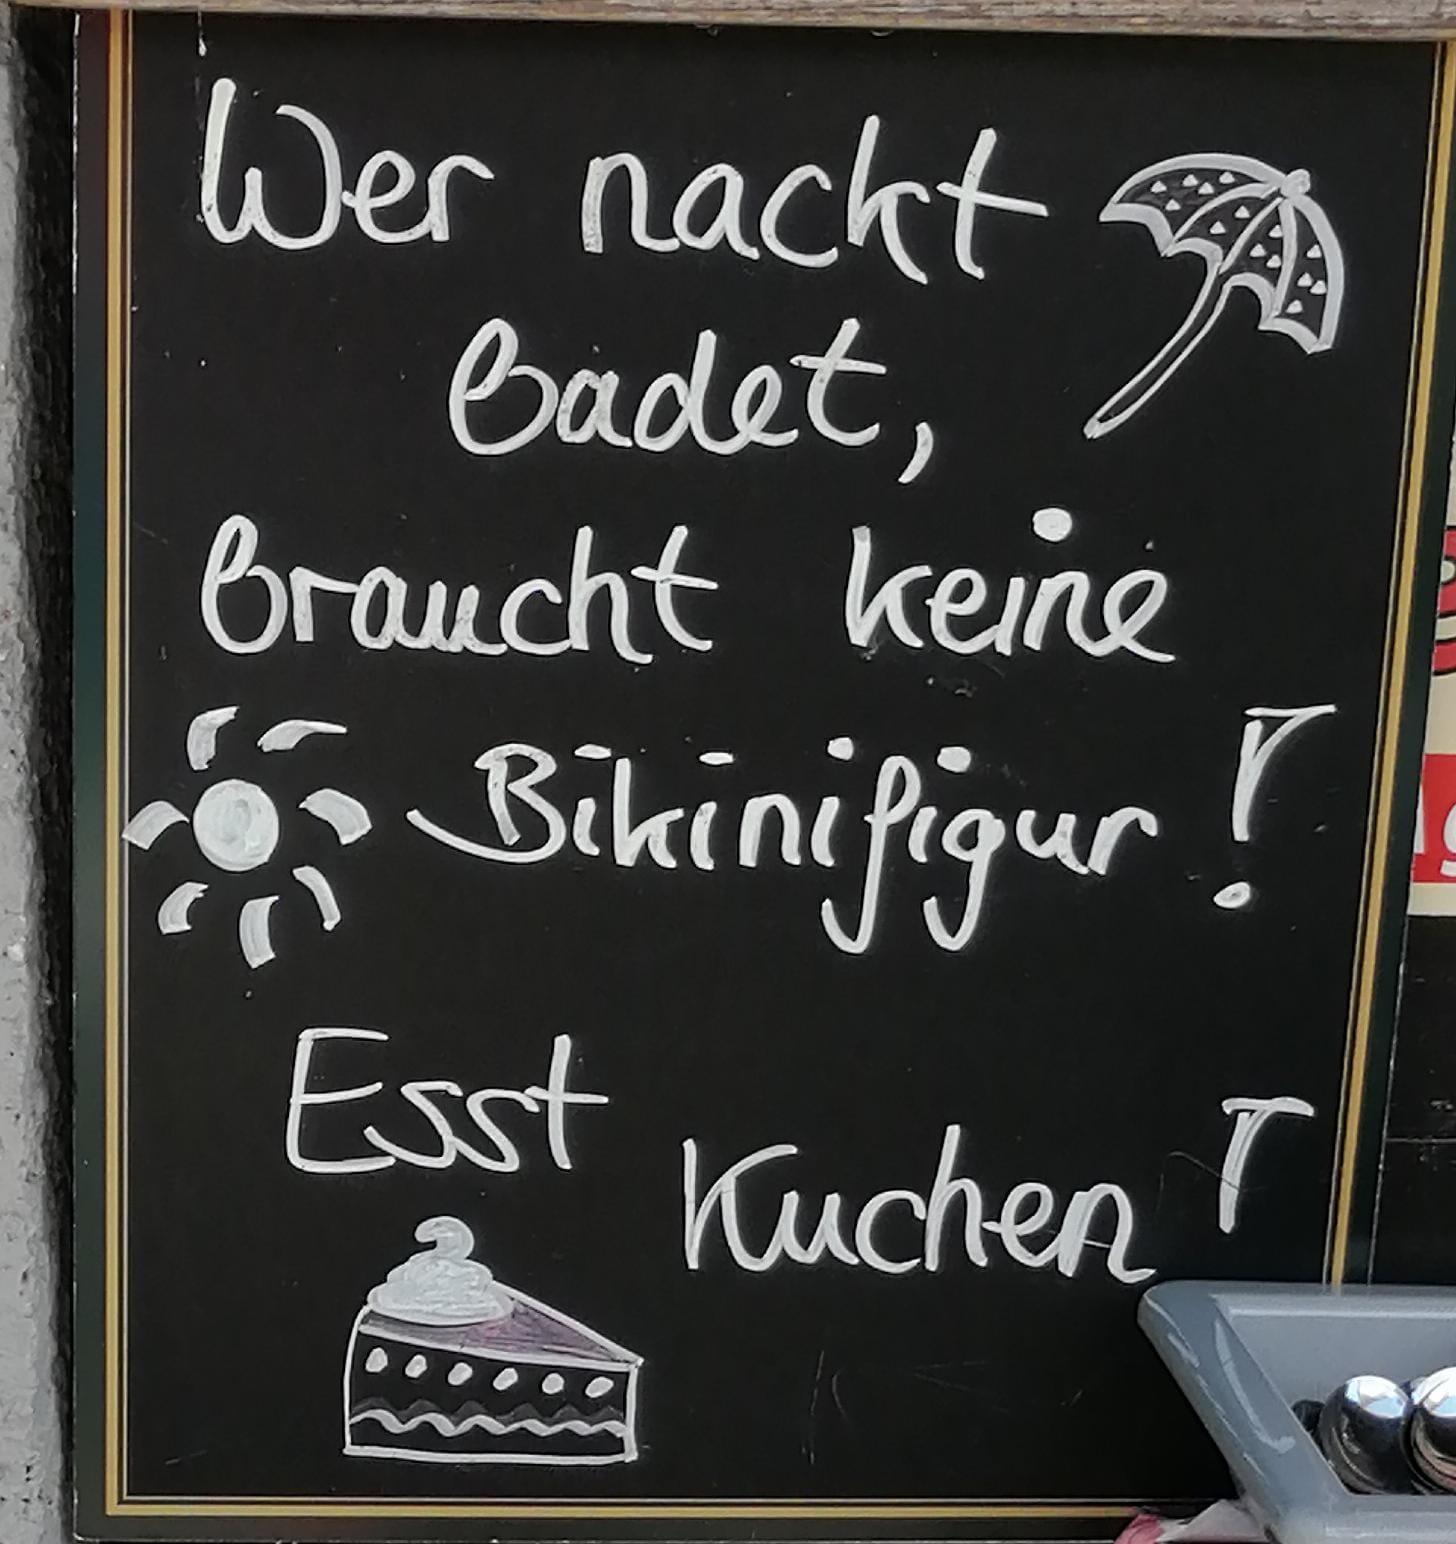 Wer nackt
Badet,
Braucht keine
Bikinifigur!
Esst
Kuchen!